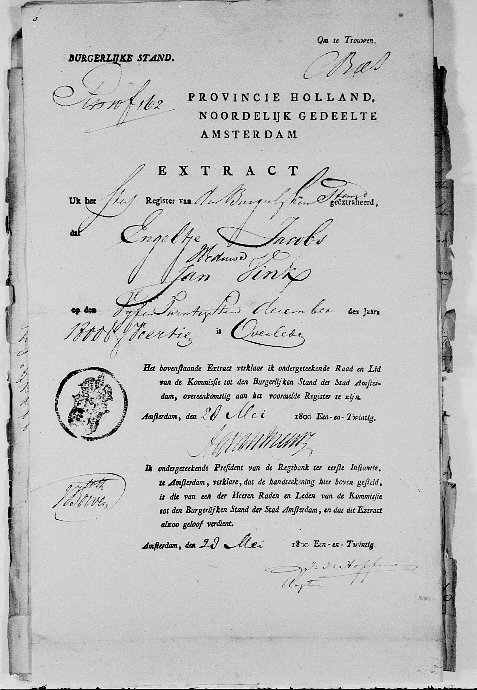 Om te Trouwen.
BURGERLIJKE STAND.
PROVINCIE HOLLAND,
NOORDELIJK GEDEELTE
AMSTERDAM
EXTRACT
Uit het Sterf Register van den Burgerlyken Stand geëxtraheerd,
dat Engeltje Jacobs
Weduwe
Jan Vink
op den Vyfentwintigsten december des Jaars
1800 & Veertien is Overleden
Het bovenstaande Extract verklaar ik ondergeteekende Raad en Lid
van de Kommissie tot den Burgerlijken Stand der Stad Amster-
dam, overeenkomstig aan het voormelde Register te zijn.
Amsterdam, den 28 Mei 1800 Een-en-Twintig.
Ik ondergeteekende President van de Regtbank ter eerste Instantie,
te Amsterdam, verklare, dat de handteekening hier boven gesteld,
is die van een der Heeren Raden en Leden van de Kommissie
tot den Burgerlijken Stand der Stad Amsterdam, en dat dit Extract
alzoo geloof verdient.
Amsterdam, den 28 Mei 1800 Een-en-Twintig.